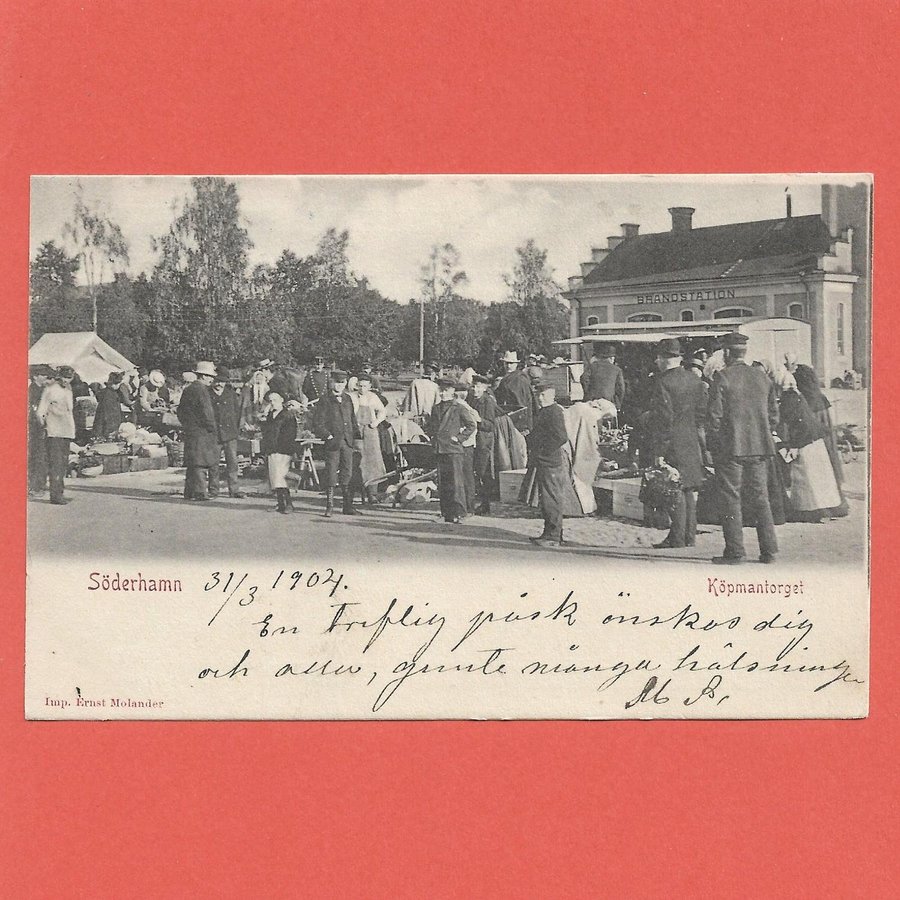 BRANDSTATION
Söderhamn 31/3 1904. Köpmantorget
En treflig påsk önskas dig
och alla, gumte många hälsningar
Imp. Ernst Molander M B.